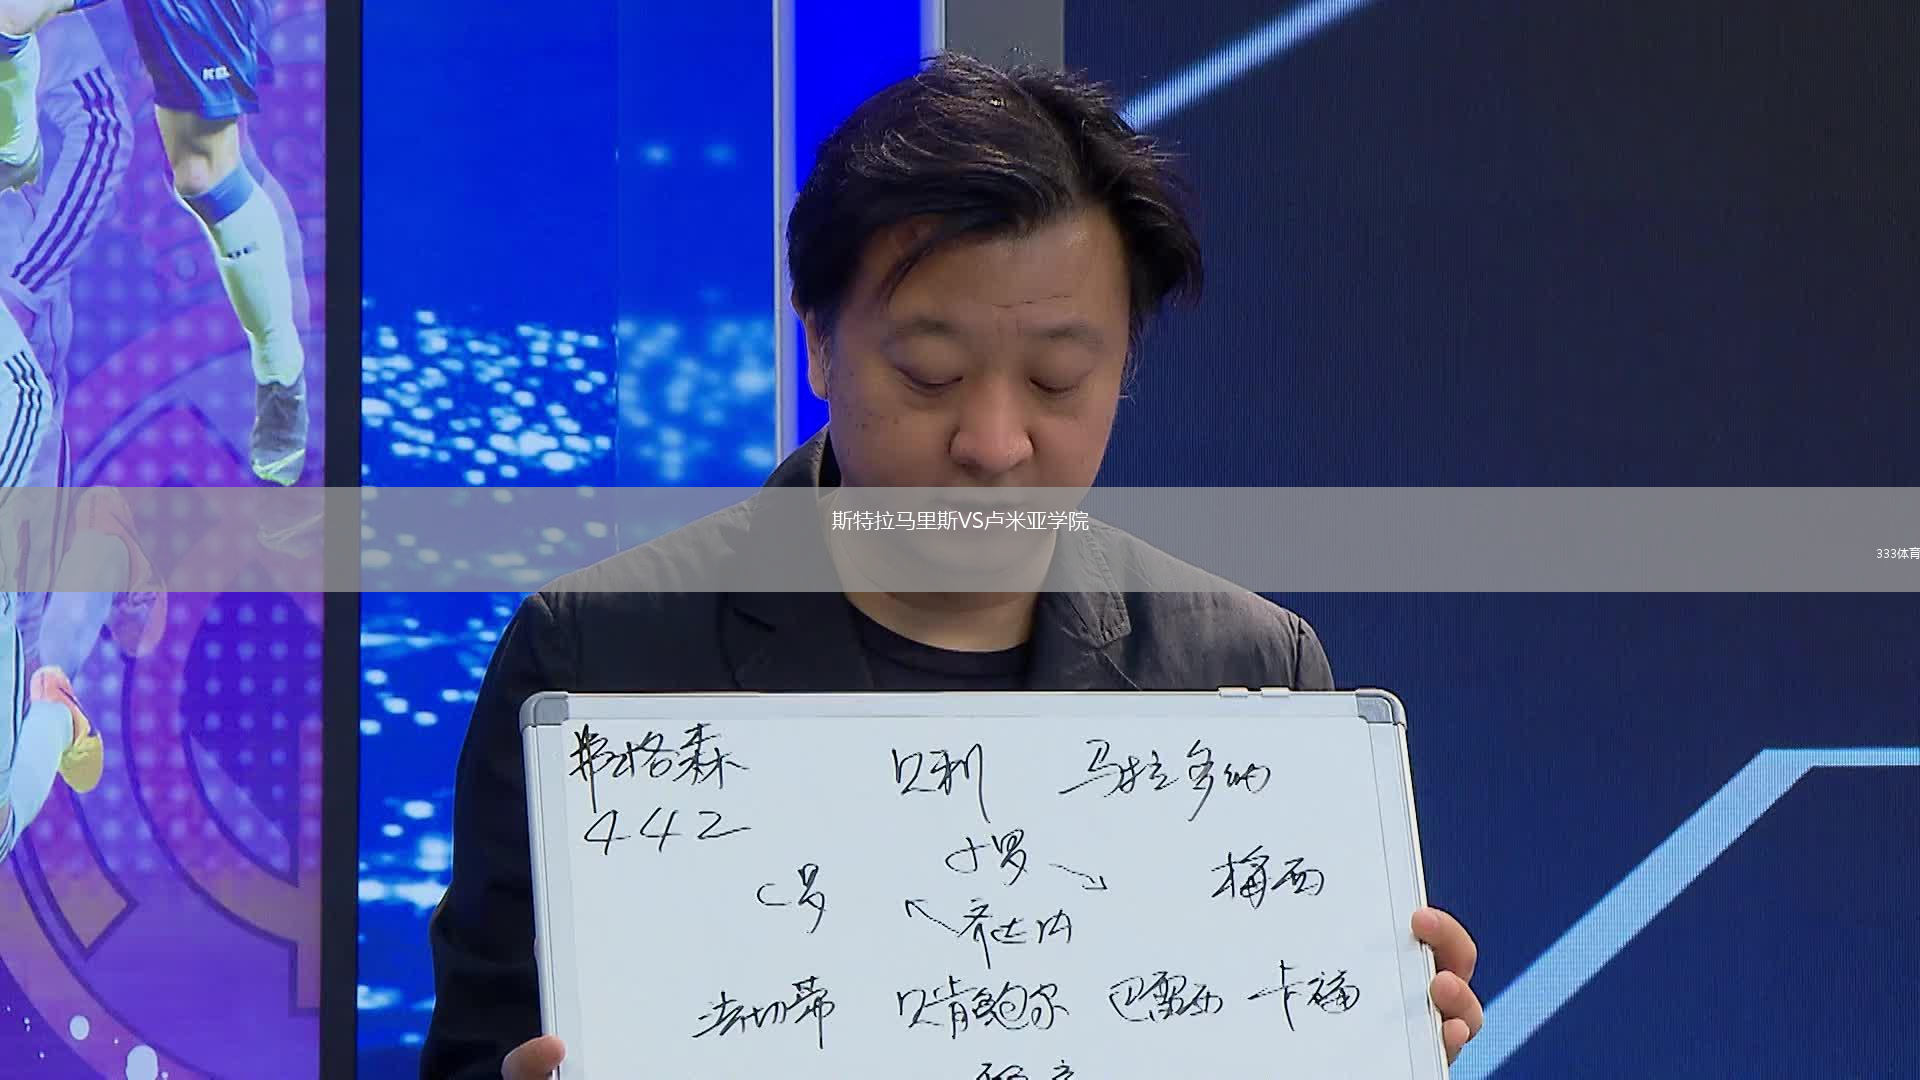 斯特拉马里斯VS卢米亚学院
333体育
弗格森 贝利 马拉多纳
442
小罗
C罗 梅西
齐达内
法切蒂 贝肯鲍尔 巴雷西 卡福